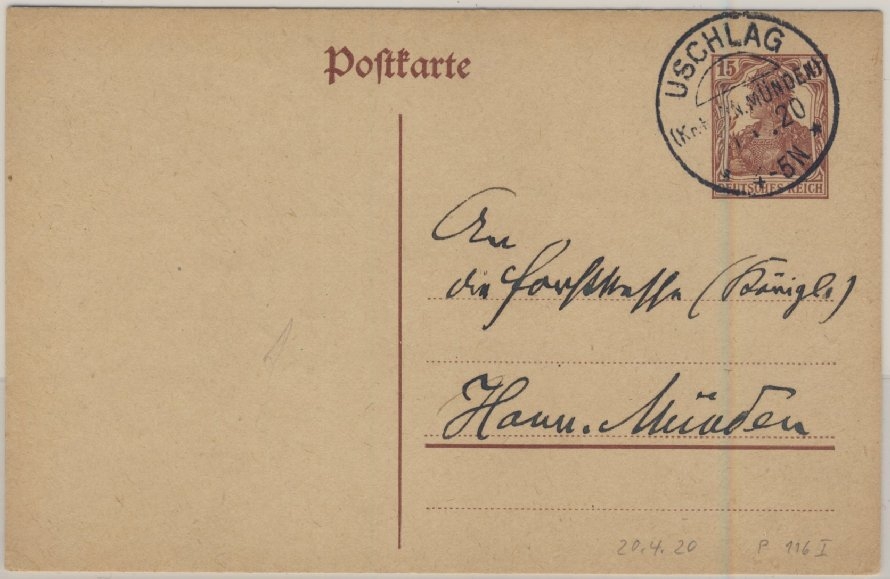 Postkarte
USCHLAG
(Kr. HN. MÜNDEN)
.20
4-5N
15
DEUTSCHES REICH
An
die Forstkasse (Königl.)
Hann. Münden
20.4.20 P 116 I